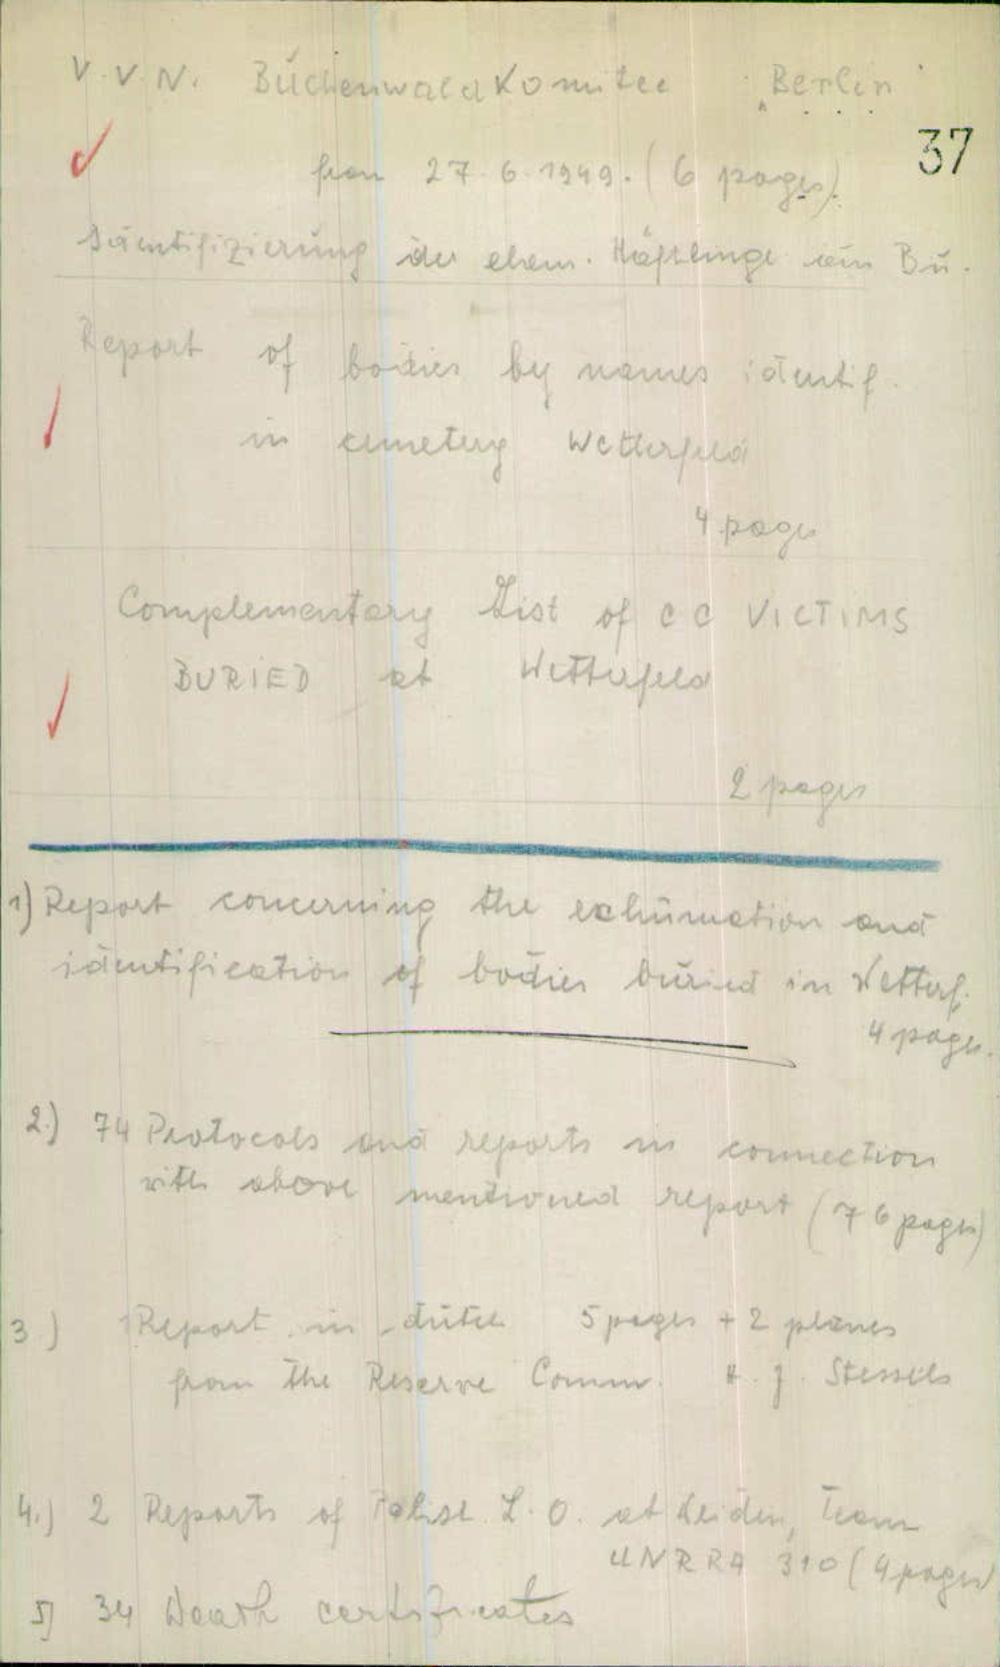 V.V.N. Buchenwald Komitee Berlin
37
from 27.6.1949. (6 pages).
Identifizierung der ehem. Häftlinge in Bu.
Report of bodies by names identif.
in cemetery Wetterfeld
4 pages
Complementary List of CC VICTIMS
BURIED at Wetterfeld
2 pages
1) Report concerning the exhumation and
identification of bodies buried in Wetterf.
4 pages.
2.) 74 Protocols and reports in connection
with above mentioned report (76 pages)
3) 1 Report in dutch 5 pages + 2 planes
from the Reserve Comm. H. J. Stessels
4.) 2 Reports of L.O. at Weiden, Team
UNRRA 310 (4 pages)
5) 34 Death certificates